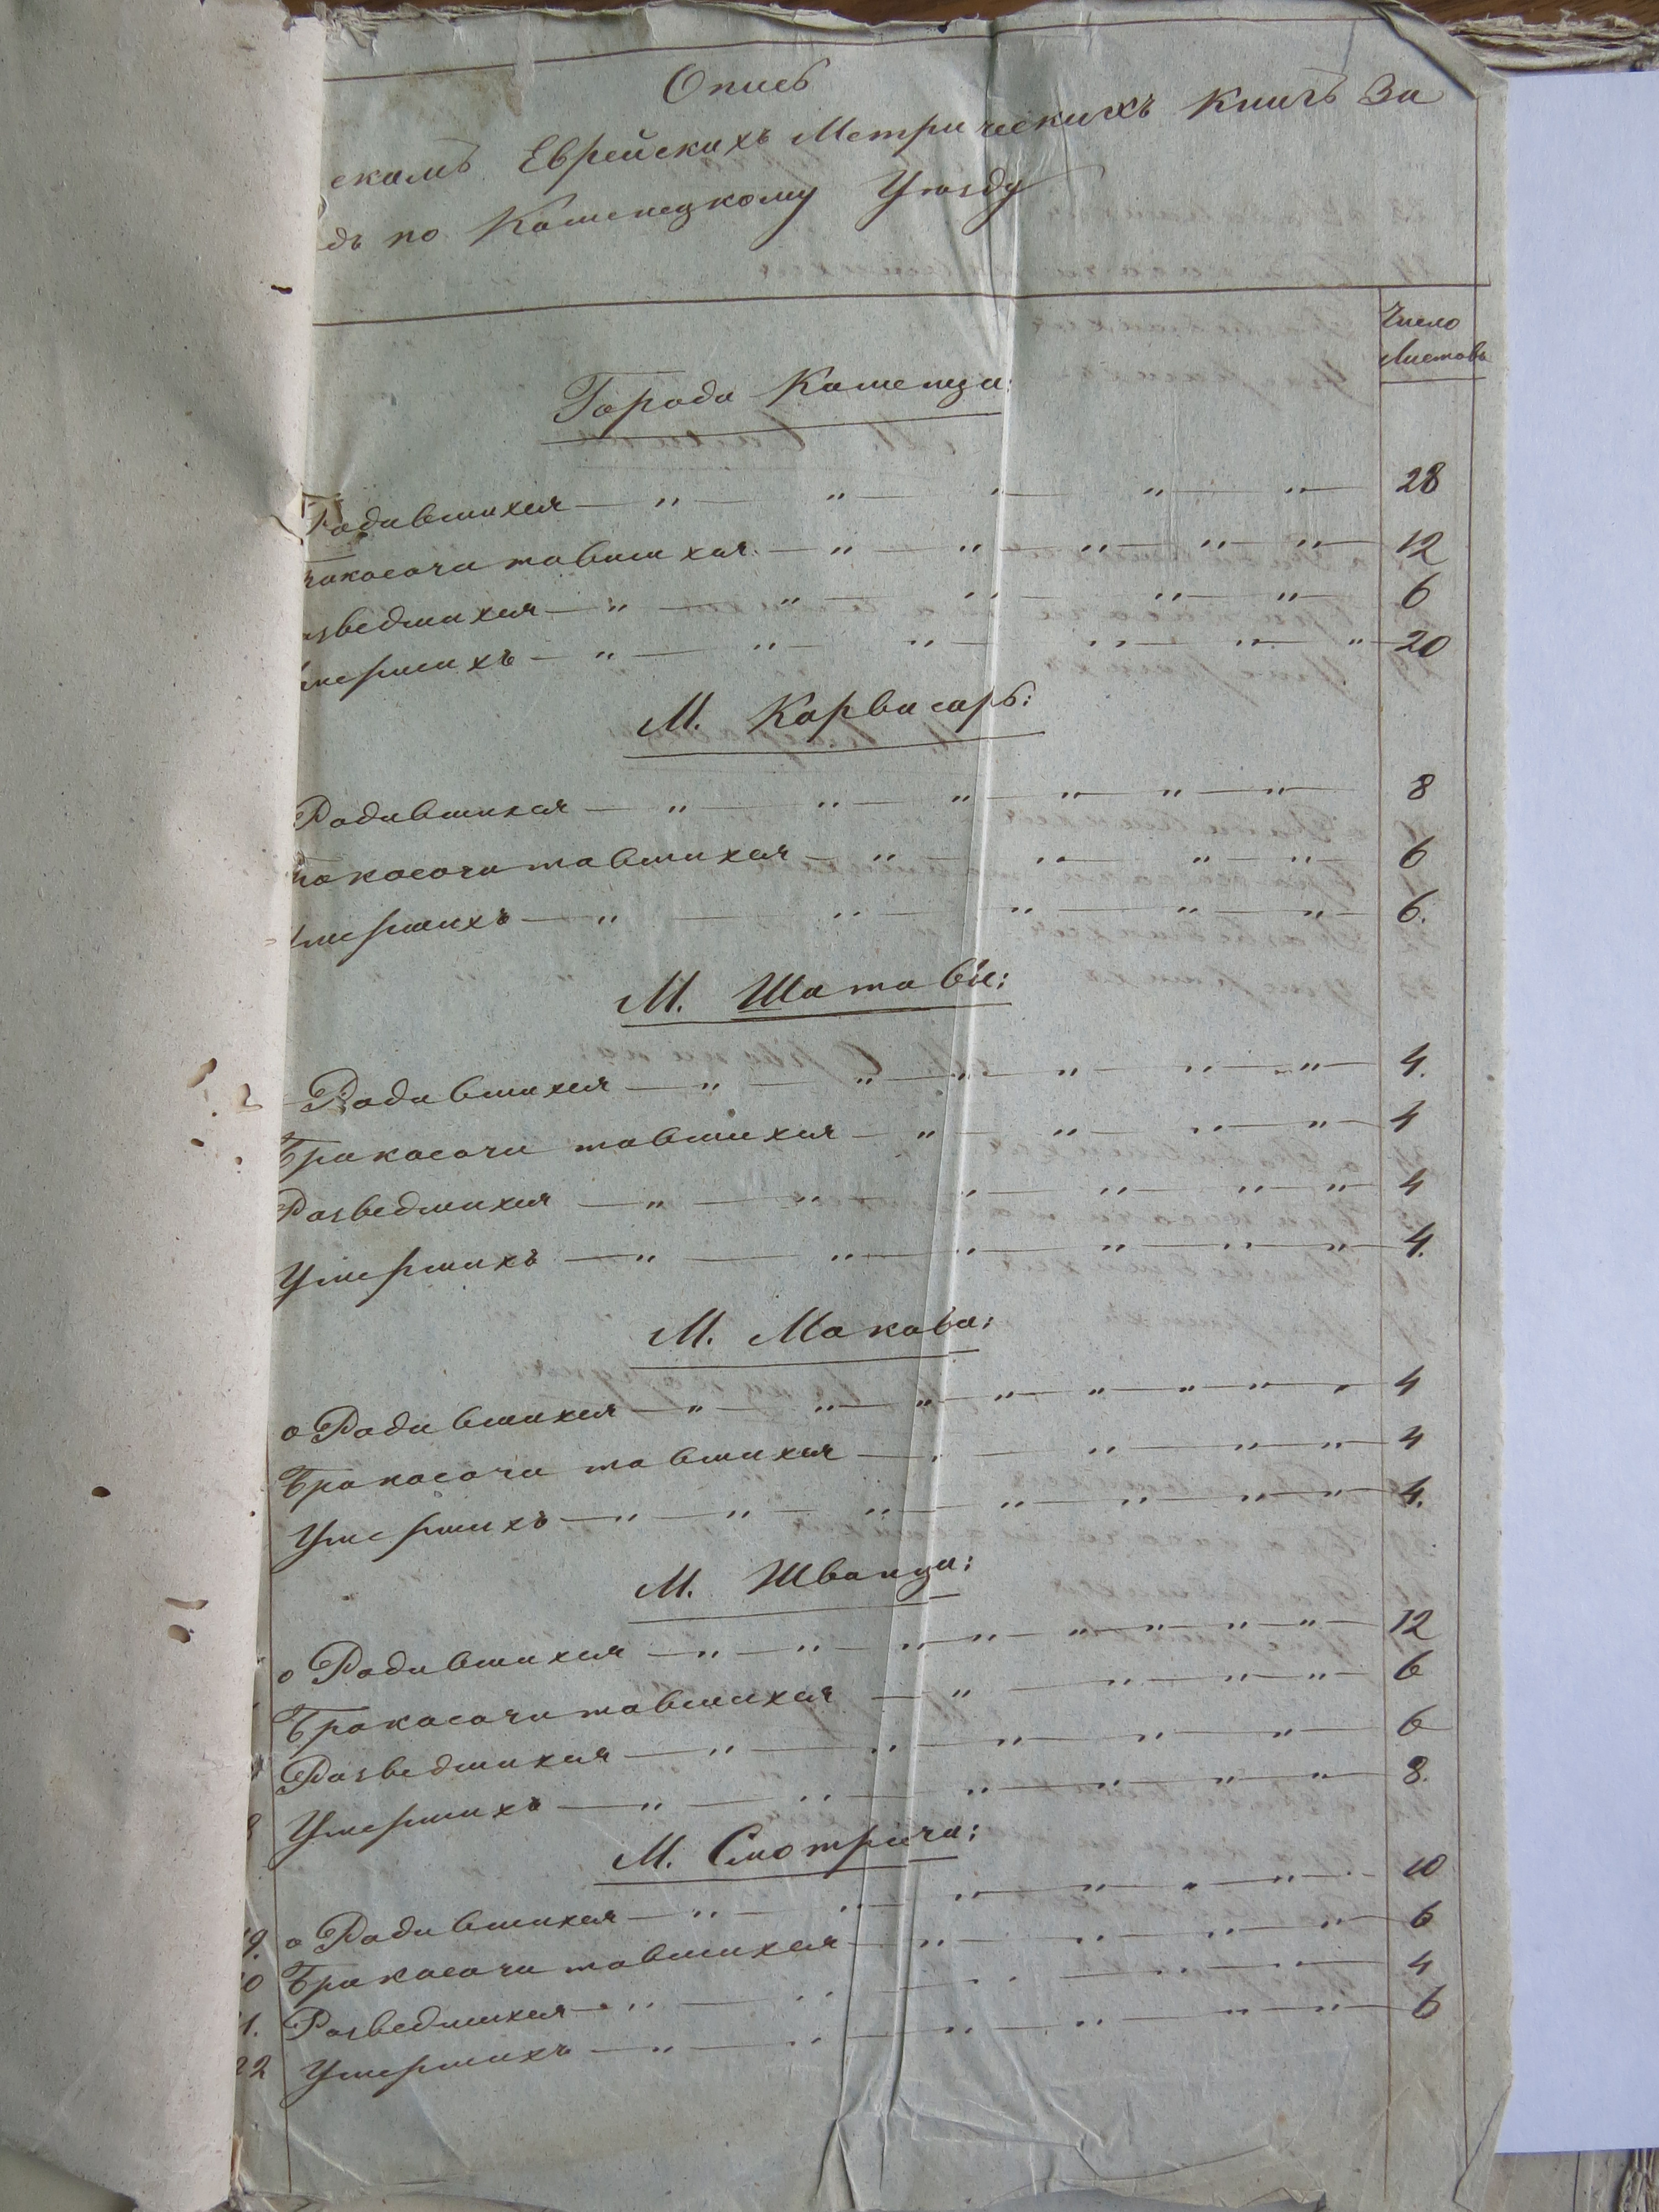 Опись
скамъ Еврейскихъ Метрическихъ Книгъ За
дъ по Каменецкому Уѣзду
Число
Листовъ
Города Каменца:
Родившихся — „ — „ — „ — „ — „ — 28
ракосочитавшихся — „ — „ — „ — „ — „ — 12
азведшихся — „ — „ — „ — „ — „ — 6
мершихъ — „ — „ — „ — „ — „ — „ — 20
М. Карвасаръ:
Родившихся — „ — „ — „ — „ — „ — „ — 8
ракосочитавшихся — „ — „ — „ — „ — 6
мершихъ — „ — „ — „ — „ — „ — 6.
М. Шатавы:
Родившихся — „ — „ — „ — „ — „ — „ — 4.
Бракосочитавшихся — „ — „ — „ — „ — 4
Разведшихся — „ — „ — „ — „ — „ — „ — 4
Умершихъ — „ — „ — „ — „ — „ — „ — 4.
М. Макова:
о Родившихся — „ — „ — „ — „ — „ — „ — „ — „ 4
Бракосочитавшихся — „ — „ — „ — „ — 4
Умершихъ — „ — „ — „ — „ — „ — „ — „ — 4.
М. Жванца:
о Родившихся — „ — „ — „ — „ — „ — „ — „ — „ — 12
Бракосочитавшихся — „ — „ — „ — „ — 6
Разведшихся — „ — „ — „ — „ — „ — 6
8 Умершихъ — „ — „ — „ — „ — „ — „ — 8.
М. Смотрича:
19. о Родившихся — „ — „ — „ — „ — „ — „ — 10
20 Бракосочитавшихся — „ — „ — „ — „ — 6
21. Разведшихся — „ — „ — „ — „ — „ — 4
22 Умершихъ — „ — „ — „ — „ — „ — „ — 6